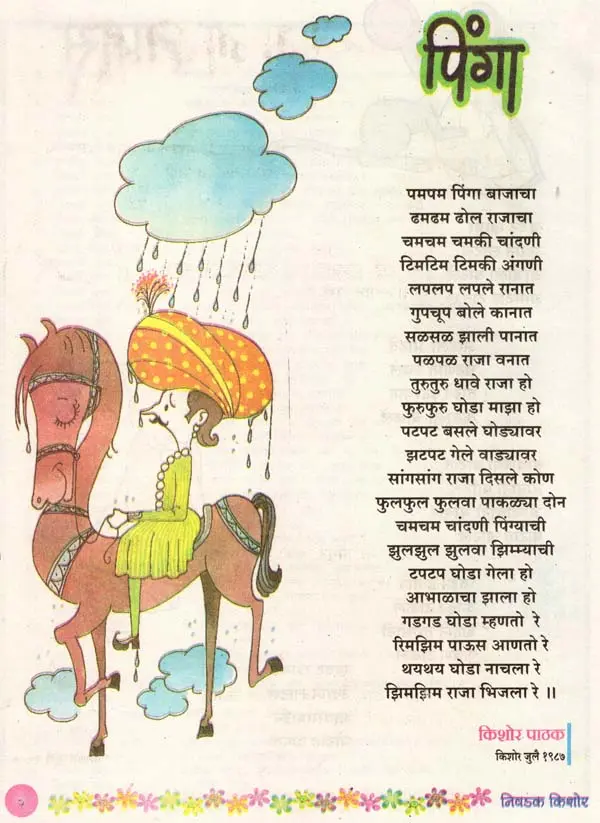 पिंगा
पमपम पिंगा बाजाचा
ढमढम ढोल राजाचा
चमचम चमकी चांदणी
टिमटिम टिमकी अंगणी
लपलप लपले रानात
गुपचूप बोले कानात
सळसळ झाली पानांत
पळपळ राजा वनात
तुरुतुरु धावे राजा हो
फुरुफुरु घोडा माझा हो
पटपट बसले घोड्यावर
झटपट गेले वाड्यावर
सांगसांग राजा दिसले कोण
फुलफुल फुलवा पाकळ्या दोन
चमचम चांदणी पिंग्याची
झुलझुल झुलवा झिम्म्याची
टपटप घोडा गेला हो
आभाळाचा झाला हो
गडगड घोडा म्हणतो रे
रिमझिम पाऊस आणतो रे
थयथय घोडा नाचला रे
झिमझिम राजा भिजला रे ॥
किशोर पाठक
किशोर जुलै १९८७
निवडक किशोर